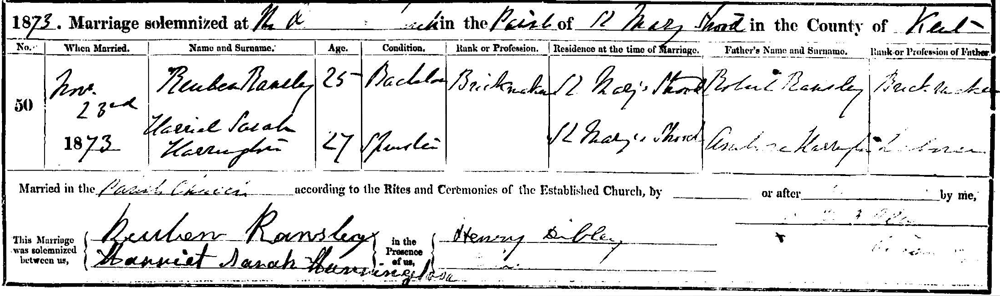 1873. Marriage solemnized at in the Parish of St Mary Strood in the County of Kent
No. When Married. Name and Surname. Age. Condition. Rank or Profession. Residence at the time of Marriage. Father's Name and Surname. Rank or Profession of Father.
50 Nov. 23rd 1873 Reuben Ransley 25 Bachelor Brickmaker St Mary's Strood Robert Ransley Brickmaker
Harriet Sarah Harrington 27 Spinster St Mary's Strood Harrington
Married in the Parish Church according to the Rites and Ceremonies of the Established Church, by or after by me,
This Marriage was solemnized between us, Reuben Ransley in the Presence of us, Henry Sibley
Harriet Sarah Harrington